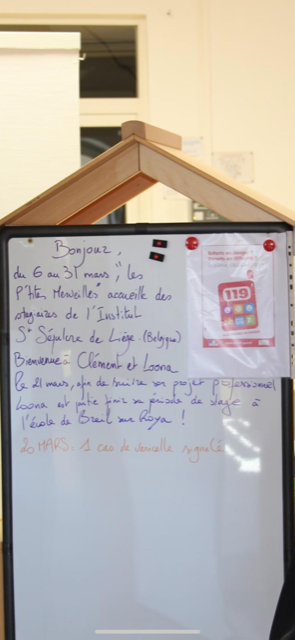 Bonjour,
du 6 au 31 mars, "les
P'tites Merveilles" accueille des
stagiaires de l'Institut
St Sépulcre de Liège. (Belgique)
Bienvenue à Clément et Loona
Le 21 mars, afin de                 son projet professionnel
Loona est partie finir sa période de stage à
l'école de Breil sur Roya !
20 MARS. 1 cas de varicelle signalé
119